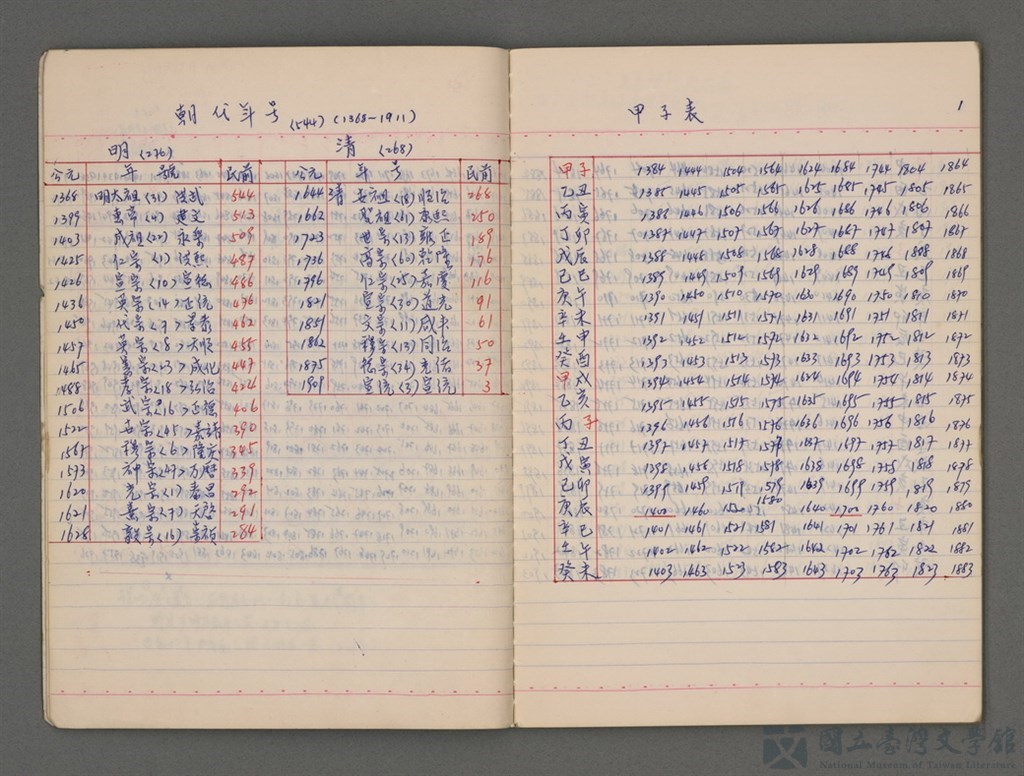 朝代年号 (544) (1368-1911)
明 (276) 清 (268)
公元 年號 民前 公元 年号 民前
1368 明太祖 (31) 洪武 544 1644 清 世祖 (18) 順治 268
1399 惠帝 (4) 建文 513 1662 聖祖 (61) 康熙 250
1403 成祖 (22) 永樂 509 1723 世宗 (13) 雍正 189
1425 仁宗 (1) 洪熙 487 1736 高宗 (60) 乾隆 176
1426 宣宗 (10) 宣德 486 1796 仁宗 (25) 嘉慶 116
1436 英宗 (14) 正統 476 1821 宣宗 (30) 道光 91
1450 代宗 (7) 景泰 462 1851 文宗 (11) 咸丰 61
1457 英宗 (8) 天順 455 1862 穆宗 (13) 同治 50
1465 憲宗 (23) 成化 447 1875 德宗 (34) 光緒 37
1488 孝宗 (18) 弘治 424 1909 宣統 (3) 宣統 3
1506 武宗 (16) 正德 406
1522 世宗 (45) 嘉靖 390
1567 穆宗 (6) 隆庆 345
1573 神宗 (47) 万曆 339
1620 光宗 (1) 泰昌 292
1621 熹宗 (7) 天啓 291
1628 毅宗 (16) 崇禎 284
甲子表 1
甲子 1384 1444 1504 1564 1624 1684 1744 1804 1864
乙丑 1385 1445 1505 1565 1625 1685 1745 1805 1865
丙寅 1386 1446 1506 1566 1626 1686 1746 1806 1866
丁卯 1387 1447 1507 1567 1627 1687 1747 1807 1867
戊辰 1388 1448 1508 1568 1628 1688 1748 1808 1868
己巳 1389 1449 1509 1569 1629 1689 1749 1809 1869
庚午 1390 1450 1510 1570 1630 1690 1750 1810 1870
辛未 1391 1451 1511 1571 1631 1691 1751 1811 1871
壬申 1392 1452 1512 1572 1632 1692 1752 1812 1872
癸酉 1393 1453 1513 1573 1633 1693 1753 1813 1873
甲戌 1394 1454 1514 1574 1634 1694 1754 1814 1874
乙亥 1395 1455 1515 1575 1635 1695 1755 1815 1875
丙子 1396 1456 1516 1576 1636 1696 1756 1816 1876
丁丑 1397 1457 1517 1577 1637 1697 1757 1817 1877
戊寅 1398 1458 1518 1578 1638 1698 1758 1818 1878
己卯 1399 1459 1519 1579 1639 1699 1759 1819 1879
庚辰 1400 1460 1520 1580 1640 1700 1760 1820 1880
辛巳 1401 1461 1521 1581 1641 1701 1761 1821 1881
壬午 1402 1462 1522 1582 1642 1702 1762 1822 1882
癸未 1403 1463 1523 1583 1643 1703 1763 1823 1883
國立臺灣文學館
National Museum of Taiwan Literature